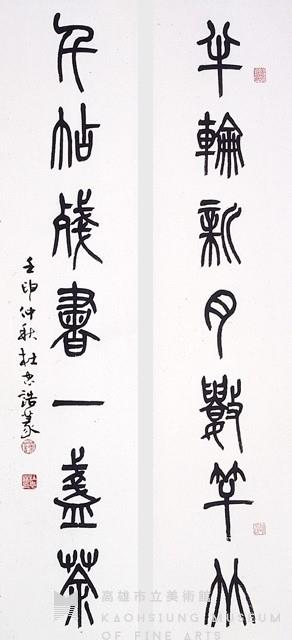 半輪新月數竿竹
千帖殘書一盞茶
壬申仲秋杜忠誥篆
高雄市立美術館
KAOHSIUNG MUSEUM
OF FINE ARTS